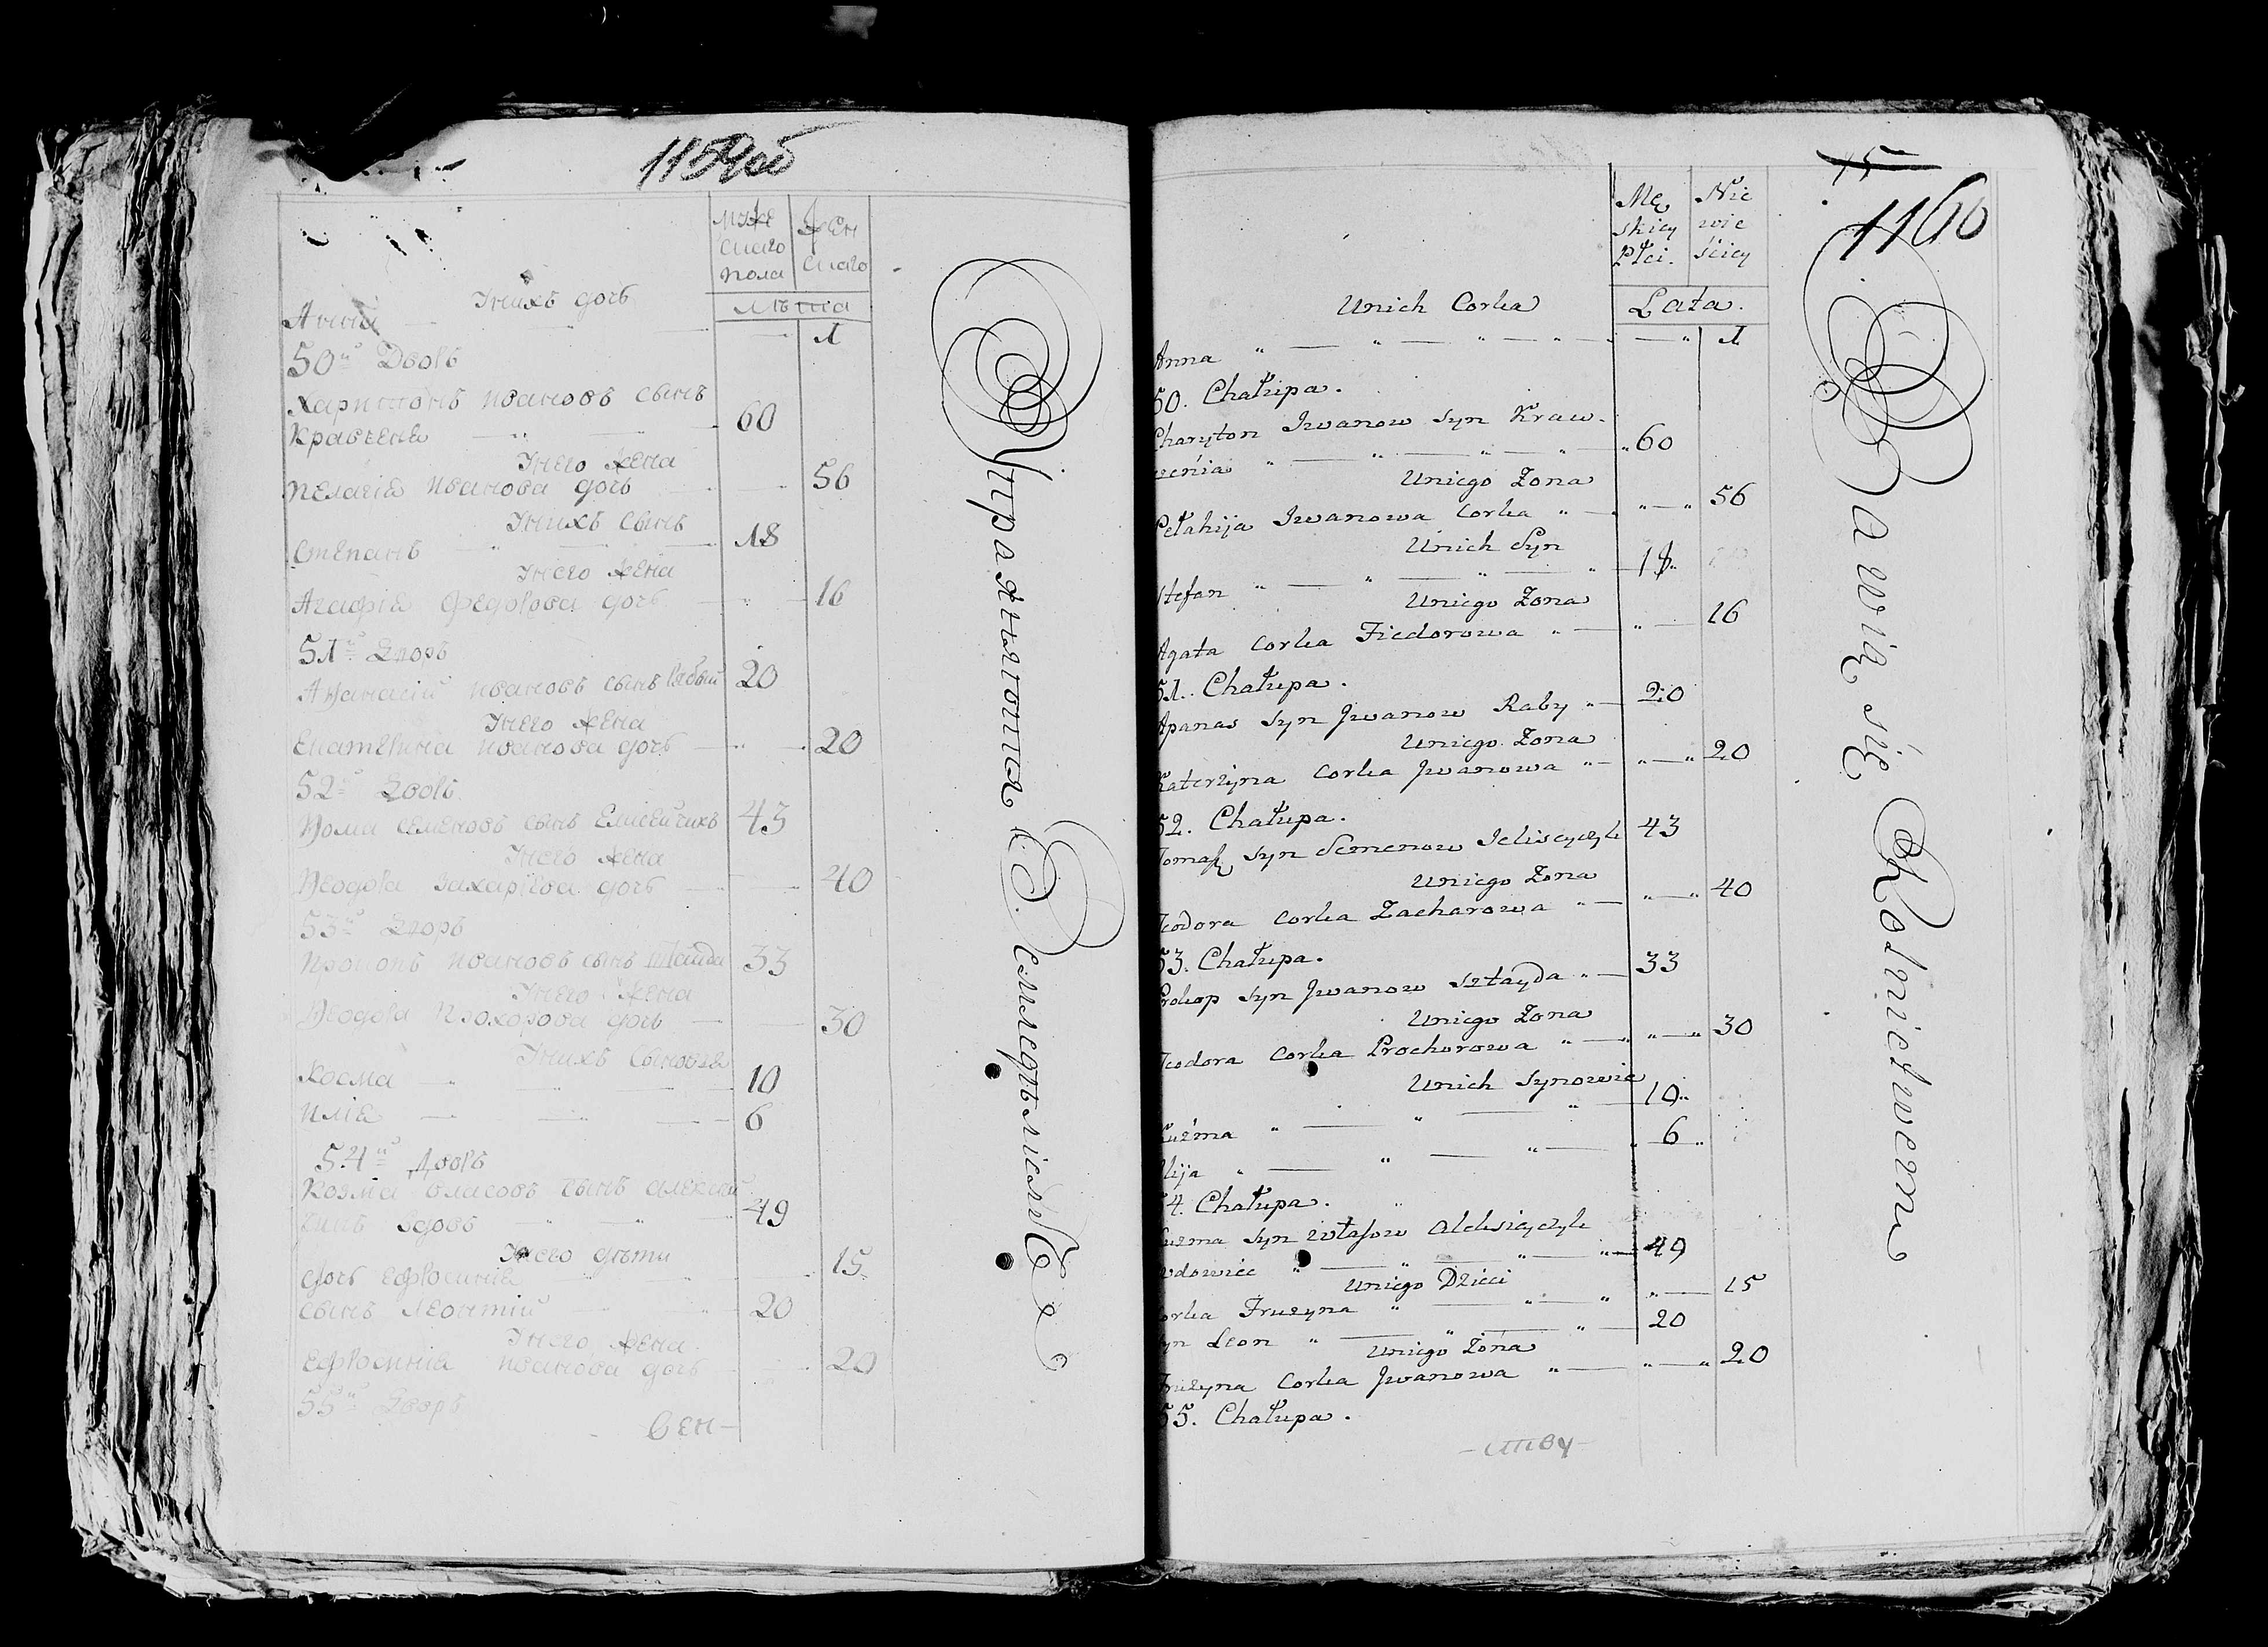 1159об
Муже
скаго
пола
Жен
скаго
Лѣта
Уныхъ дочь
Анна — 1
50й Дворъ
Харитонъ Ивановъ сынъ
Кравченя 60
Унего жена
Пелагія Иванова дочь 56
Унихъ сынъ
Степанъ 18
Унего жена
Агафія Федорова дочь 16
51й Дворъ
Аѳанасій Ивановъ сынъ Рабый 20
Унего жена
Екатерина Иванова дочь 20
52й Дворъ
Ѳома Семеновъ сынъ Елисейчикъ 43
Унего жена
Ѳеодора Захарова дочь 40
53й Дворъ
Прокопъ Ивановъ сынъ Штайда 33
Унего жена
Ѳеодора Прохорова дочь 30
Унихъ сыновья
Косма 10
Илія 6
54й Дворъ
Козма Власовъ сынъ Алексей
чикъ вдовъ 49
Унего дѣти
дочь Ефросинія 15
сынъ Леонтій 20
Унего жена
Ефросинія Иванова дочь 20
55й Дворъ
Сен-
Упражняются Земледѣліемъ
15
1160
Mę
skiey
Płci.
Nie
wie
ściey
Lata.
Unich Corka
Anna " — " — " — " — " 1
50. Chałupa.
Charyton Iwanow syn Kraw.
czenia " — " — " — " — "60
Uniego Żona
Pełahija Iwanowa Corka " — " — " 56
Unich Syn
Stefan " — " — " — " — 18"
Uniego Żona
Agata Corka Fiedorowa " — " — 16
51. Chałupa.
Apanas syn Jwanow Raby " — 20
Uniego Żona
Katerzyna Corka Jwanowa " — " — " 20
52. Chałupa.
Tomasz syn Semenow Jeliseyczyk 43
Uniego Żona
Teodora Corka Zacharowa " — " — " 40
53. Chałupa.
Prokop syn Jwanow Sztayda " — 33
Uniego Żona
Teodora Corka Prochorowa " — " — " 30
Unich Synowie
Kuźma " — " — " — 10"
Ilija " — " — " — " 6 "
54. Chałupa.
Kuzma syn Własow Aleksieyczyk
wdowiec " — " — " — " — 49
Uniego Dzieci
Corka Fruzyna " — " — " " — 15
syn Leon " — " — " — 20
Uniego Żona
Fruzyna Corka Jwanowa " — " — " 20
55. Chałupa.
-ству-
Bawią się Rolnictwem